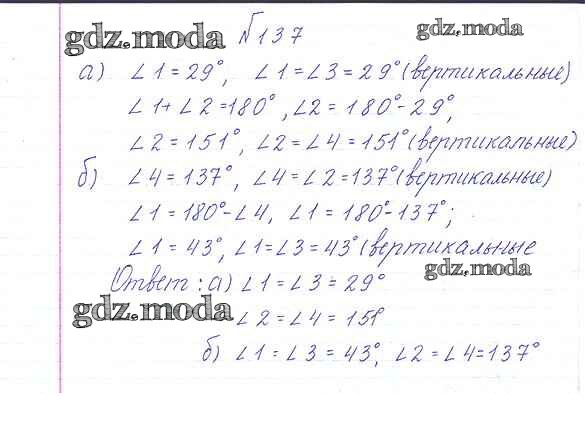 gdz.moda №137 gdz.moda
а) ∠1 = 29°, ∠1 = ∠3 = 29° (вертикальные)
∠1 + ∠2 = 180°, ∠2 = 180° - 29°,
∠2 = 151°, ∠2 = ∠4 = 151° (вертикальные)
б) ∠4 = 137°, ∠4 = ∠2 = 137° (вертикальные)
∠1 = 180° - ∠4, ∠1 = 180° - 137°;
∠1 = 43°, ∠1 = ∠3 = 43° (вертикальные
gdz.moda
Ответ: а) ∠1 = ∠3 = 29°
gdz.moda
∠2 = ∠4 = 151°
б) ∠1 = ∠3 = 43°, ∠2 = ∠4 = 137°